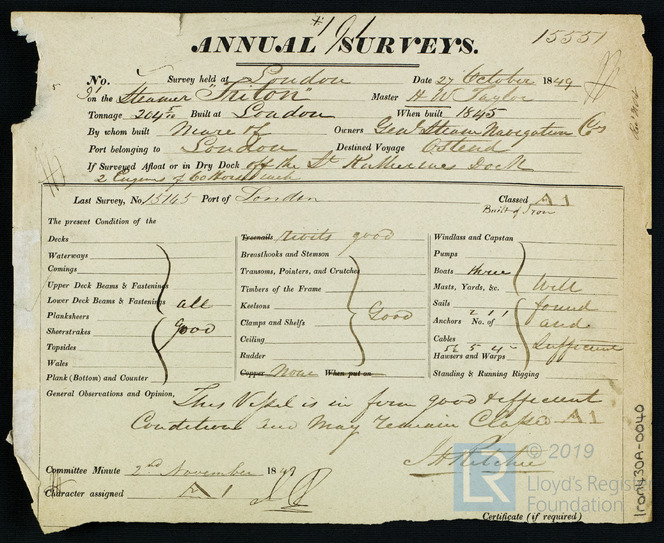 15551
* 191
ANNUAL SURVEYS.
No. Survey held at London Date 27 October 1849
on the Steamer "Triton" Master H W Taylor
Tonnage 204 Built at London When built 1845
By whom built Owners Genl Steam Navigation Co
Port belonging to London Destined Voyage Ostend
If Surveyed Afloat or in Dry Dock off the St Katherines Dock
2 Engines of 60 Horse each
Last Survey, No. 15145 Port of London Classed A1
Built of Iron
The present Condition of the
Decks Treenails Rivits good Windlass and Capstan
Waterways Breasthooks and Stemson Pumps
Comings Transoms, Pointers, and Crutches Boats three
Upper Deck Beams & Fastenings Timbers of the Frame Masts, Yards, &c. Well
Lower Deck Beams & Fastenings all Keelsons Sails found
Planksheers Good Clamps and Shelfs Anchors No. of 2 1 1 and
Sheerstrakes good Ceiling Cables Sufficient
Topsides Rudder Hausers and Warps
Wales Copper None When put on Standing & Running Rigging
Plank (Bottom) and Counter
General Observations and Opinion, This Vessel is in firm good & efficient
Condition and May remain Classed A1
J H Ritchie
Committee Minute 2nd November 1849
Character assigned A1
Certificate (if required)
Iron430A-0040
LR
© 2019
Lloyd's Register
Foundation